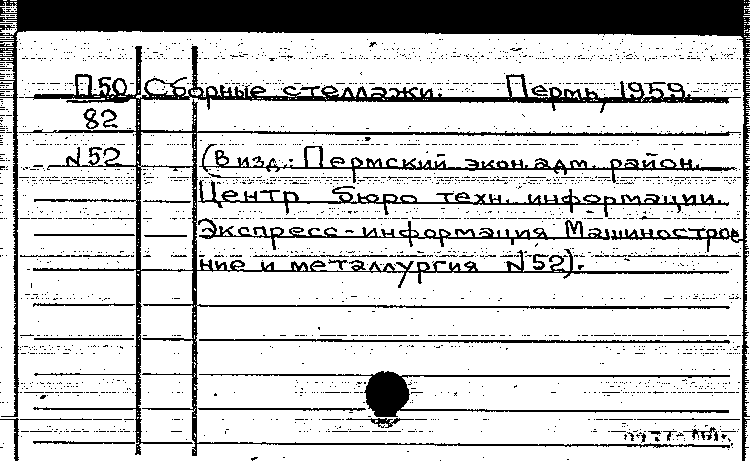 П50 Сборные стеллажи. Пермь, 1959.
82
N52 (В изд.: Пермский экон. адм. район.
Центр бюро техн. информации.
Экспресс-информация Машинострое
ние и металлургия N52).